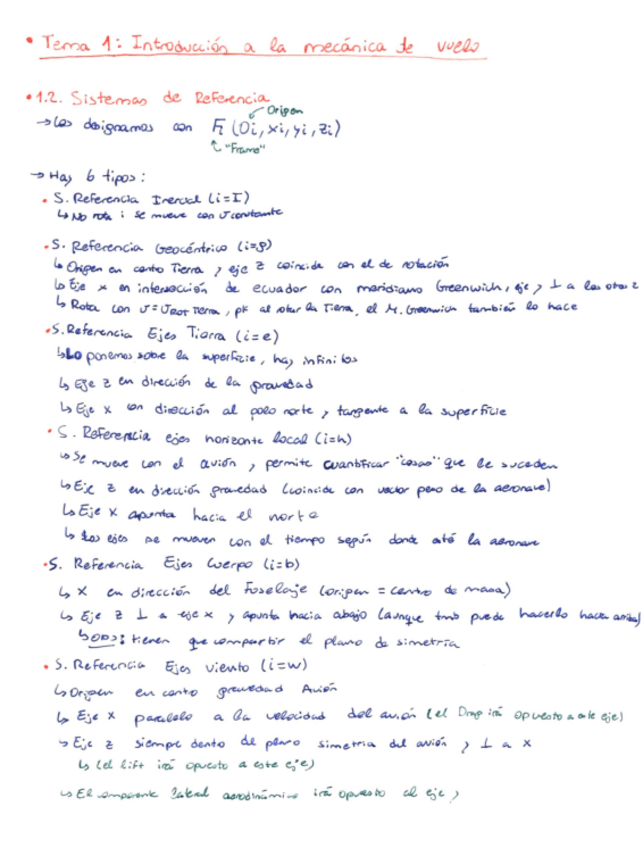 • Tema 1: Introducción a la mecánica de vuelo
• 1.2. Sistemas de Referencia
Origen
→ Los designamos con Fi (Oi, xi, yi, zi)
"Frame"
→ Hay 6 tipos:
• S. Referencia Inercial (i=I)
↳ No rota i se mueve con v constante
• S. Referencia Geocéntrico (i=g)
↳ Origen en centro Tierra y eje z coincide con el de rotación
↳ Eje x en intersección de ecuador con meridiano Greenwich, eje y ⊥ a los otros 2
↳ Rota con v = vROT Tierra, pk al rotar la Tierra, el M. Greenwich también lo hace
• S. Referencia Ejes Tierra (i=e)
↳ Lo ponemos sobre la superficie, hay infinitos
↳ Eje z en dirección de la gravedad
↳ Eje x con dirección al polo norte y tangente a la superficie
• S. Referencia ejes horizonte local (i=h)
↳ Se mueve con el avión y permite cuantificar "cosas" que le suceden
↳ Eje z en dirección gravedad (coincide con vector peso de la aeronave)
↳ Eje x apunta hacia el norte
↳ Los ejes se mueven con el tiempo según donde esté la aeronave
• S. Referencia Ejes Cuerpo (i=b)
↳ x en dirección del Fuselaje (origen = centro de masa)
↳ Eje z ⊥ a eje x y apunta hacia abajo (aunque tmb puede hacerlo hacia arriba)
↳ OJO: tienen que compartir el plano de simetría
• S. Referencia Ejes viento (i=w)
↳ Origen en centro gravedad Avión
↳ Eje x paralelo a la velocidad del avión (el Drag irá opuesto a este eje)
↳ Eje z siempre dentro del plano simetría del avión y ⊥ a x
↳ (el lift irá opuesto a este eje)
↳ El componente lateral aerodinámico irá opuesto al eje y